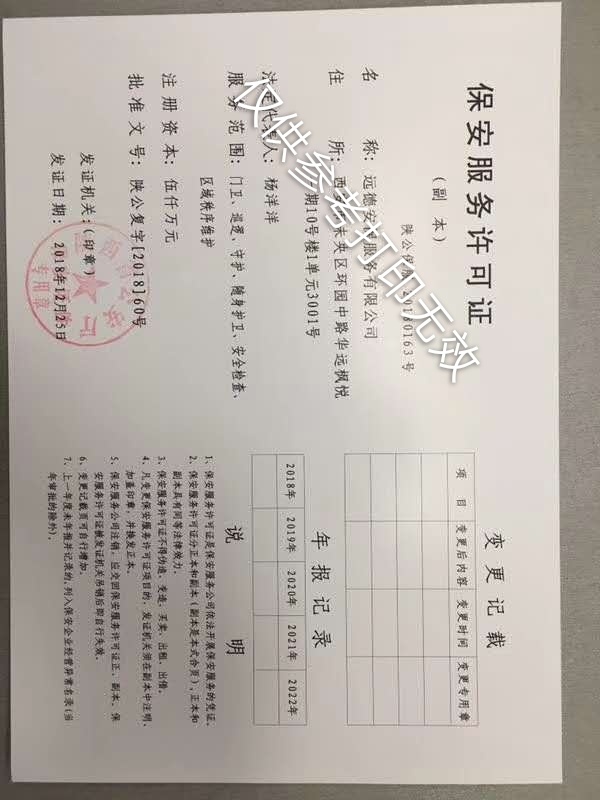 保安服务许可证
（副 本）
陕公保服20180163号
名 称：远德安保服务有限公司
住 所：西安市未央区环园中路华远枫悦
一期10号楼1单元3001号
法定代表人：杨洋洋
服务范围：门卫、巡逻、守护、随身护卫、安全检查、
区域秩序维护
注册资本：伍仟万元
批准文号：陕公复字[2018]60号
发证机关：（印章）
发证日期：2018年12月25日
专用章
变更记载
项 目 变更后内容 变更时间 变更专用章
年报记录
2018年 2019年 2020年 2021年 2022年
说 明
1、保安服务许可证是保安服务公司依法开展保安服务的凭证。
2、保安服务许可证分正本和副本（副本是本式合页），正本和
副本具有同等法律效力。
3、保安服务许可证不得伪造、变造、买卖、出租、出借。
4、凡变更保安服务许可证项目的，发证机关须在副本中注明，
加盖印章，并换发正本。
5、保安服务公司注销，应交回保安服务许可证正、副本。保
安服务许可证被发证机关吊销后即自行失效。
6、变更记载页可自行增加。
7、上一年度未年报并记录的，列入保安企业经营异常名录（当
年审批的除外）。
仅供参考打印无效